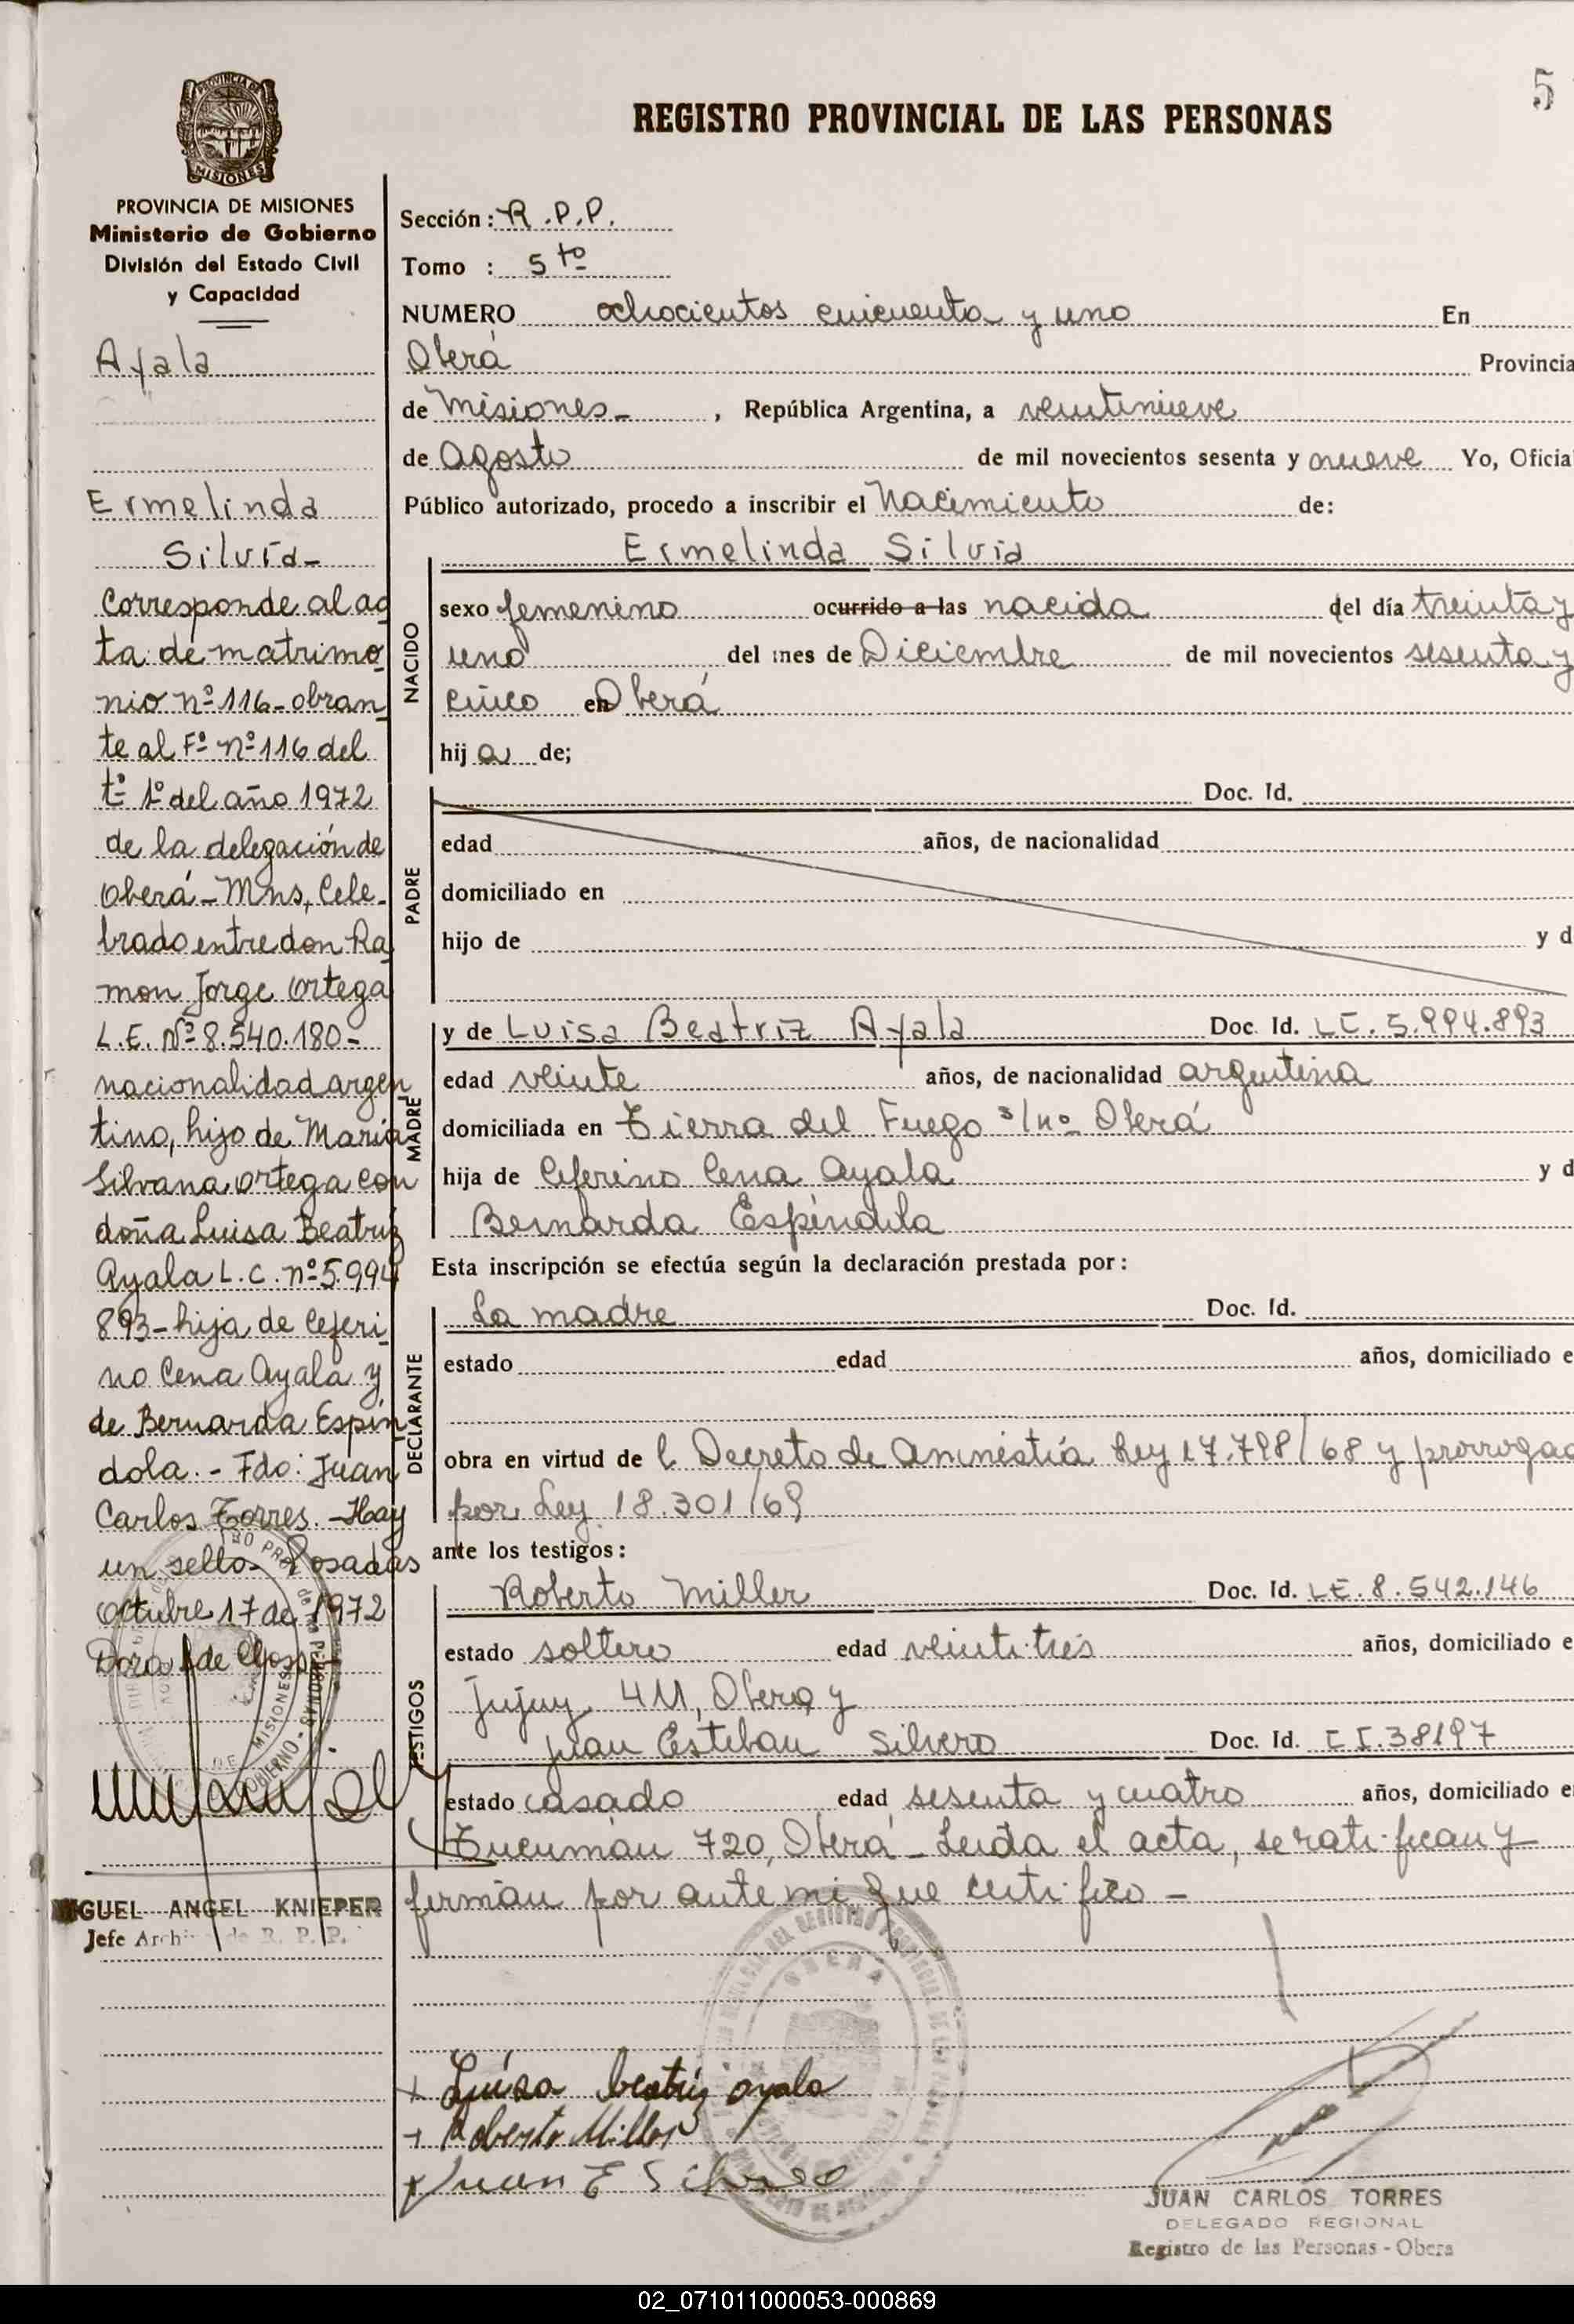 5
REGISTRO PROVINCIAL DE LAS PERSONAS
PROVINCIA DE
MISIONES
PROVINCIA DE MISIONES
Ministerio de Gobierno
División del Estado Civil
y Capacidad
Ayala
Ermelinda
Silvia-
Corresponde al ac
ta de matrimo
nio nº 116-obran
te al Fº nº 116 del
tº 1º del año 1972
de la delegación de
Oberá-Mns, Cele-
brado entre don Ra
mon Jorge Ortega
L.E. Nº 8.540.180-
nacionalidad argen
tino, hijo de María
Silvana Ortega con
doña Luisa Beatriz
Ayala L.C. nº 5.994
893-hija de Ceferi
no Cena Ayala y
de Bernarda Espín
dola.- Fdo: Juan
Carlos Torres.-Hay
un sello- Posadas
Octubre 17 de 1972
Dora de
GUEL ANGEL KNIEPER
Jefe Archi de R. P. P.
Sección: R.P.P.
Tomo : 5to
NUMERO ochocientos cincuenta y uno En
Oberá Provincia
de Misiones- , República Argentina, a veintinueve
de Agosto de mil novecientos sesenta y nueve Yo, Oficia
Público autorizado, procedo a inscribir el Nacimiento de:
Ermelinda Silvia
NACIDO
sexo femenino ocurrido a las nacida del día treinta y
uno del mes de Diciembre de mil novecientos sesenta y
cinco en Oberá
hija de;
PADRE
Doc. Id.
edad años, de nacionalidad
domiciliado en
hijo de y d
MADRE
y de Luisa Beatriz Ayala Doc. Id. LC. 5.994.893
edad veinte años, de nacionalidad argentina
domiciliada en Tierra del Fuego s/nº Oberá
hija de Ceferino Cena Ayala y d
Bernarda Espíndula
Esta inscripción se efectúa según la declaración prestada por:
DECLARANTE
La madre Doc. Id.
estado edad años, domiciliado e
obra en virtud de l Decreto de Amnestía Ley 17.798/68 y prorrogad
por Ley 18.301/69
ante los testigos:
TESTIGOS
Roberto Miller Doc. Id. LE. 8.542.146
estado soltero edad veintitrés años, domiciliado e
Jujuy 411, Obera y
Juan Esteban Silvero Doc. Id. CI. 38197
estado casado edad sesenta y cuatro años, domiciliado e
Tucumán 720, Oberá- Leída el acta, se ratifican y
firman por ante mi que certifico -
Luisa beatriz ayala
Roberto Miller
Juan E Silvero
JUAN CARLOS TORRES
DELEGADO REGIONAL
Registro de las Personas - Obera
02_071011000053-000869